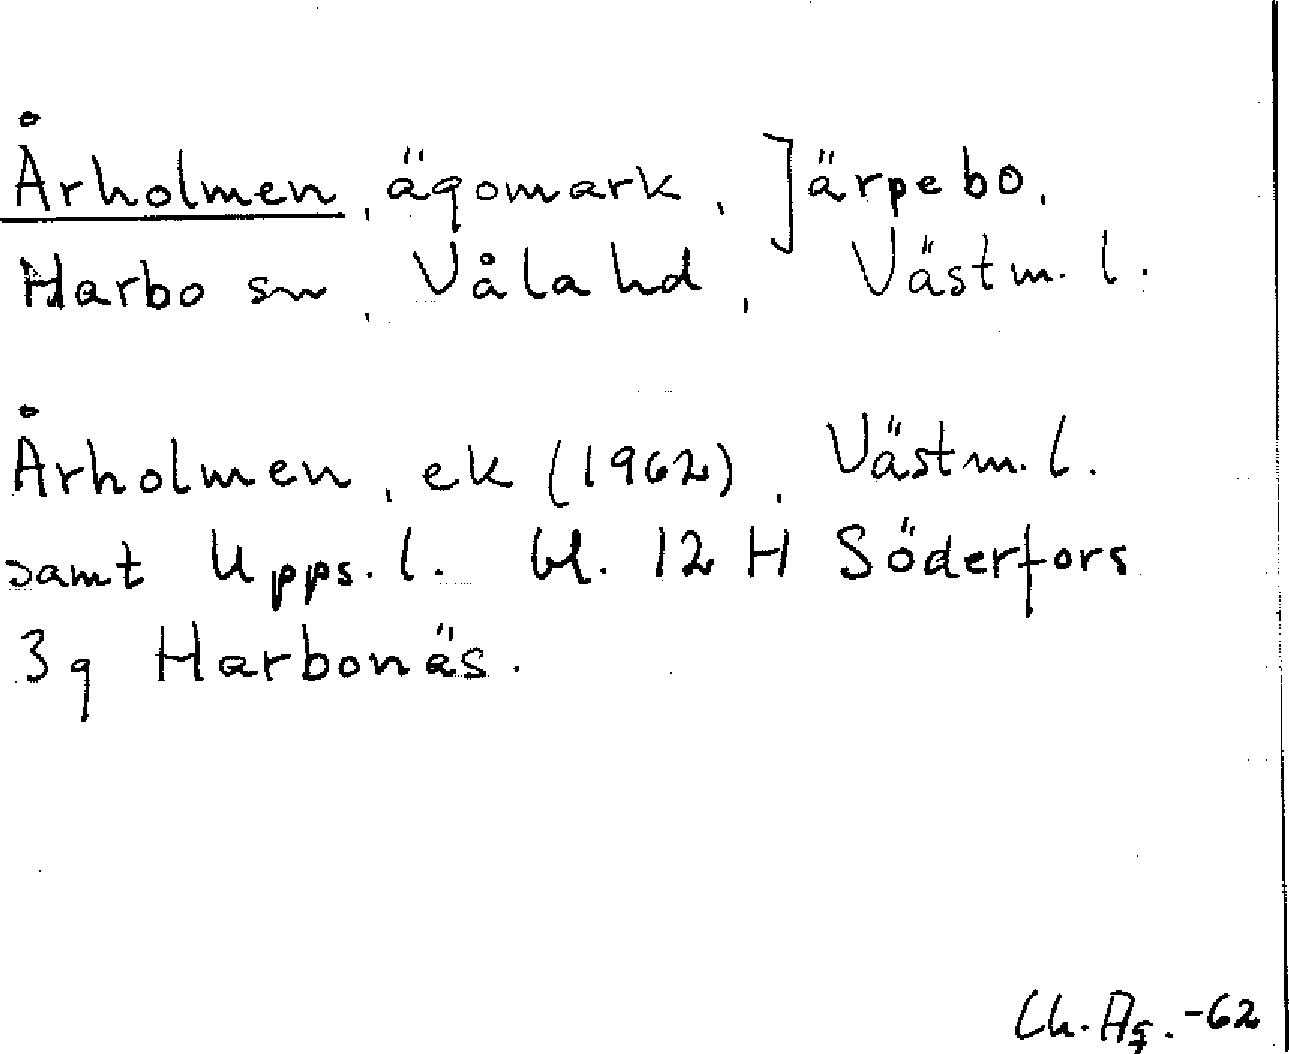 Årholmen, ägomark, Järpebo,
Harbo sn, Våla hd, Västm. l.
Årholmen, ek (1962), Västm. l.
samt Upps. l. bl. 12 H Söderfors
3 g Harbonäs.
Ch. Ag. -62